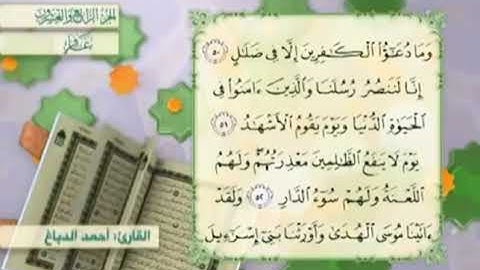 الجزء الرابع والعشرون
غافر
وَمَا دُعَٰٓؤُا۟ ٱلْكَٰفِرِينَ إِلَّا فِى ضَلَٰلٍ ٥٠
إِنَّا لَنَنصُرُ رُسُلَنَا وَٱلَّذِينَ ءَامَنُوا۟ فِى
ٱلْحَيَوٰةِ ٱلدُّنْيَا وَيَوْمَ يَقُومُ ٱلْأَشْهَٰدُ ٥١
يَوْمَ لَا يَنفَعُ ٱلظَّٰلِمِينَ مَعْذِرَتُهُمْ وَلَهُمُ
ٱللَّعْنَةُ وَلَهُمْ سُوٓءُ ٱلدَّارِ ٥٢ وَلَقَدْ
ءَاتَيْنَا مُوسَى ٱلْهُدَىٰ وَأَوْرَثْنَا بَنِىٓ إِسْرَٰٓءِيلَ
القارئ: أحمد الدباغ